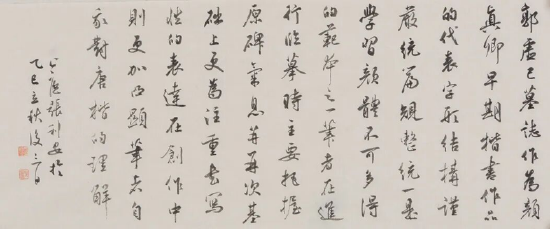 郭虚己墓誌作為顏
真卿早期楷書作品
的代表字形結構謹
嚴統篇規整統一是
學習顏體不可多得
的範本之一筆者在進
行臨摹時主要把握
原碑氣息并再次基
础上更為注重書寫
性的表達在創作中
則更加凸顯筆者自
我對唐楷的理解
張利安於
乙巳立秋後三日